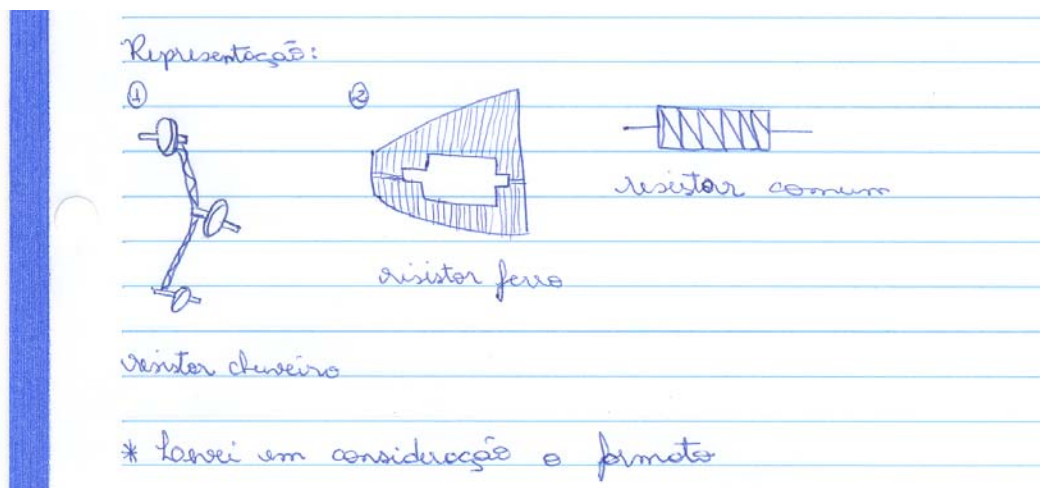 Representação:
① ②
resistor comum
risistor ferro
resistor chuveiro
* Levei em consideração o formato